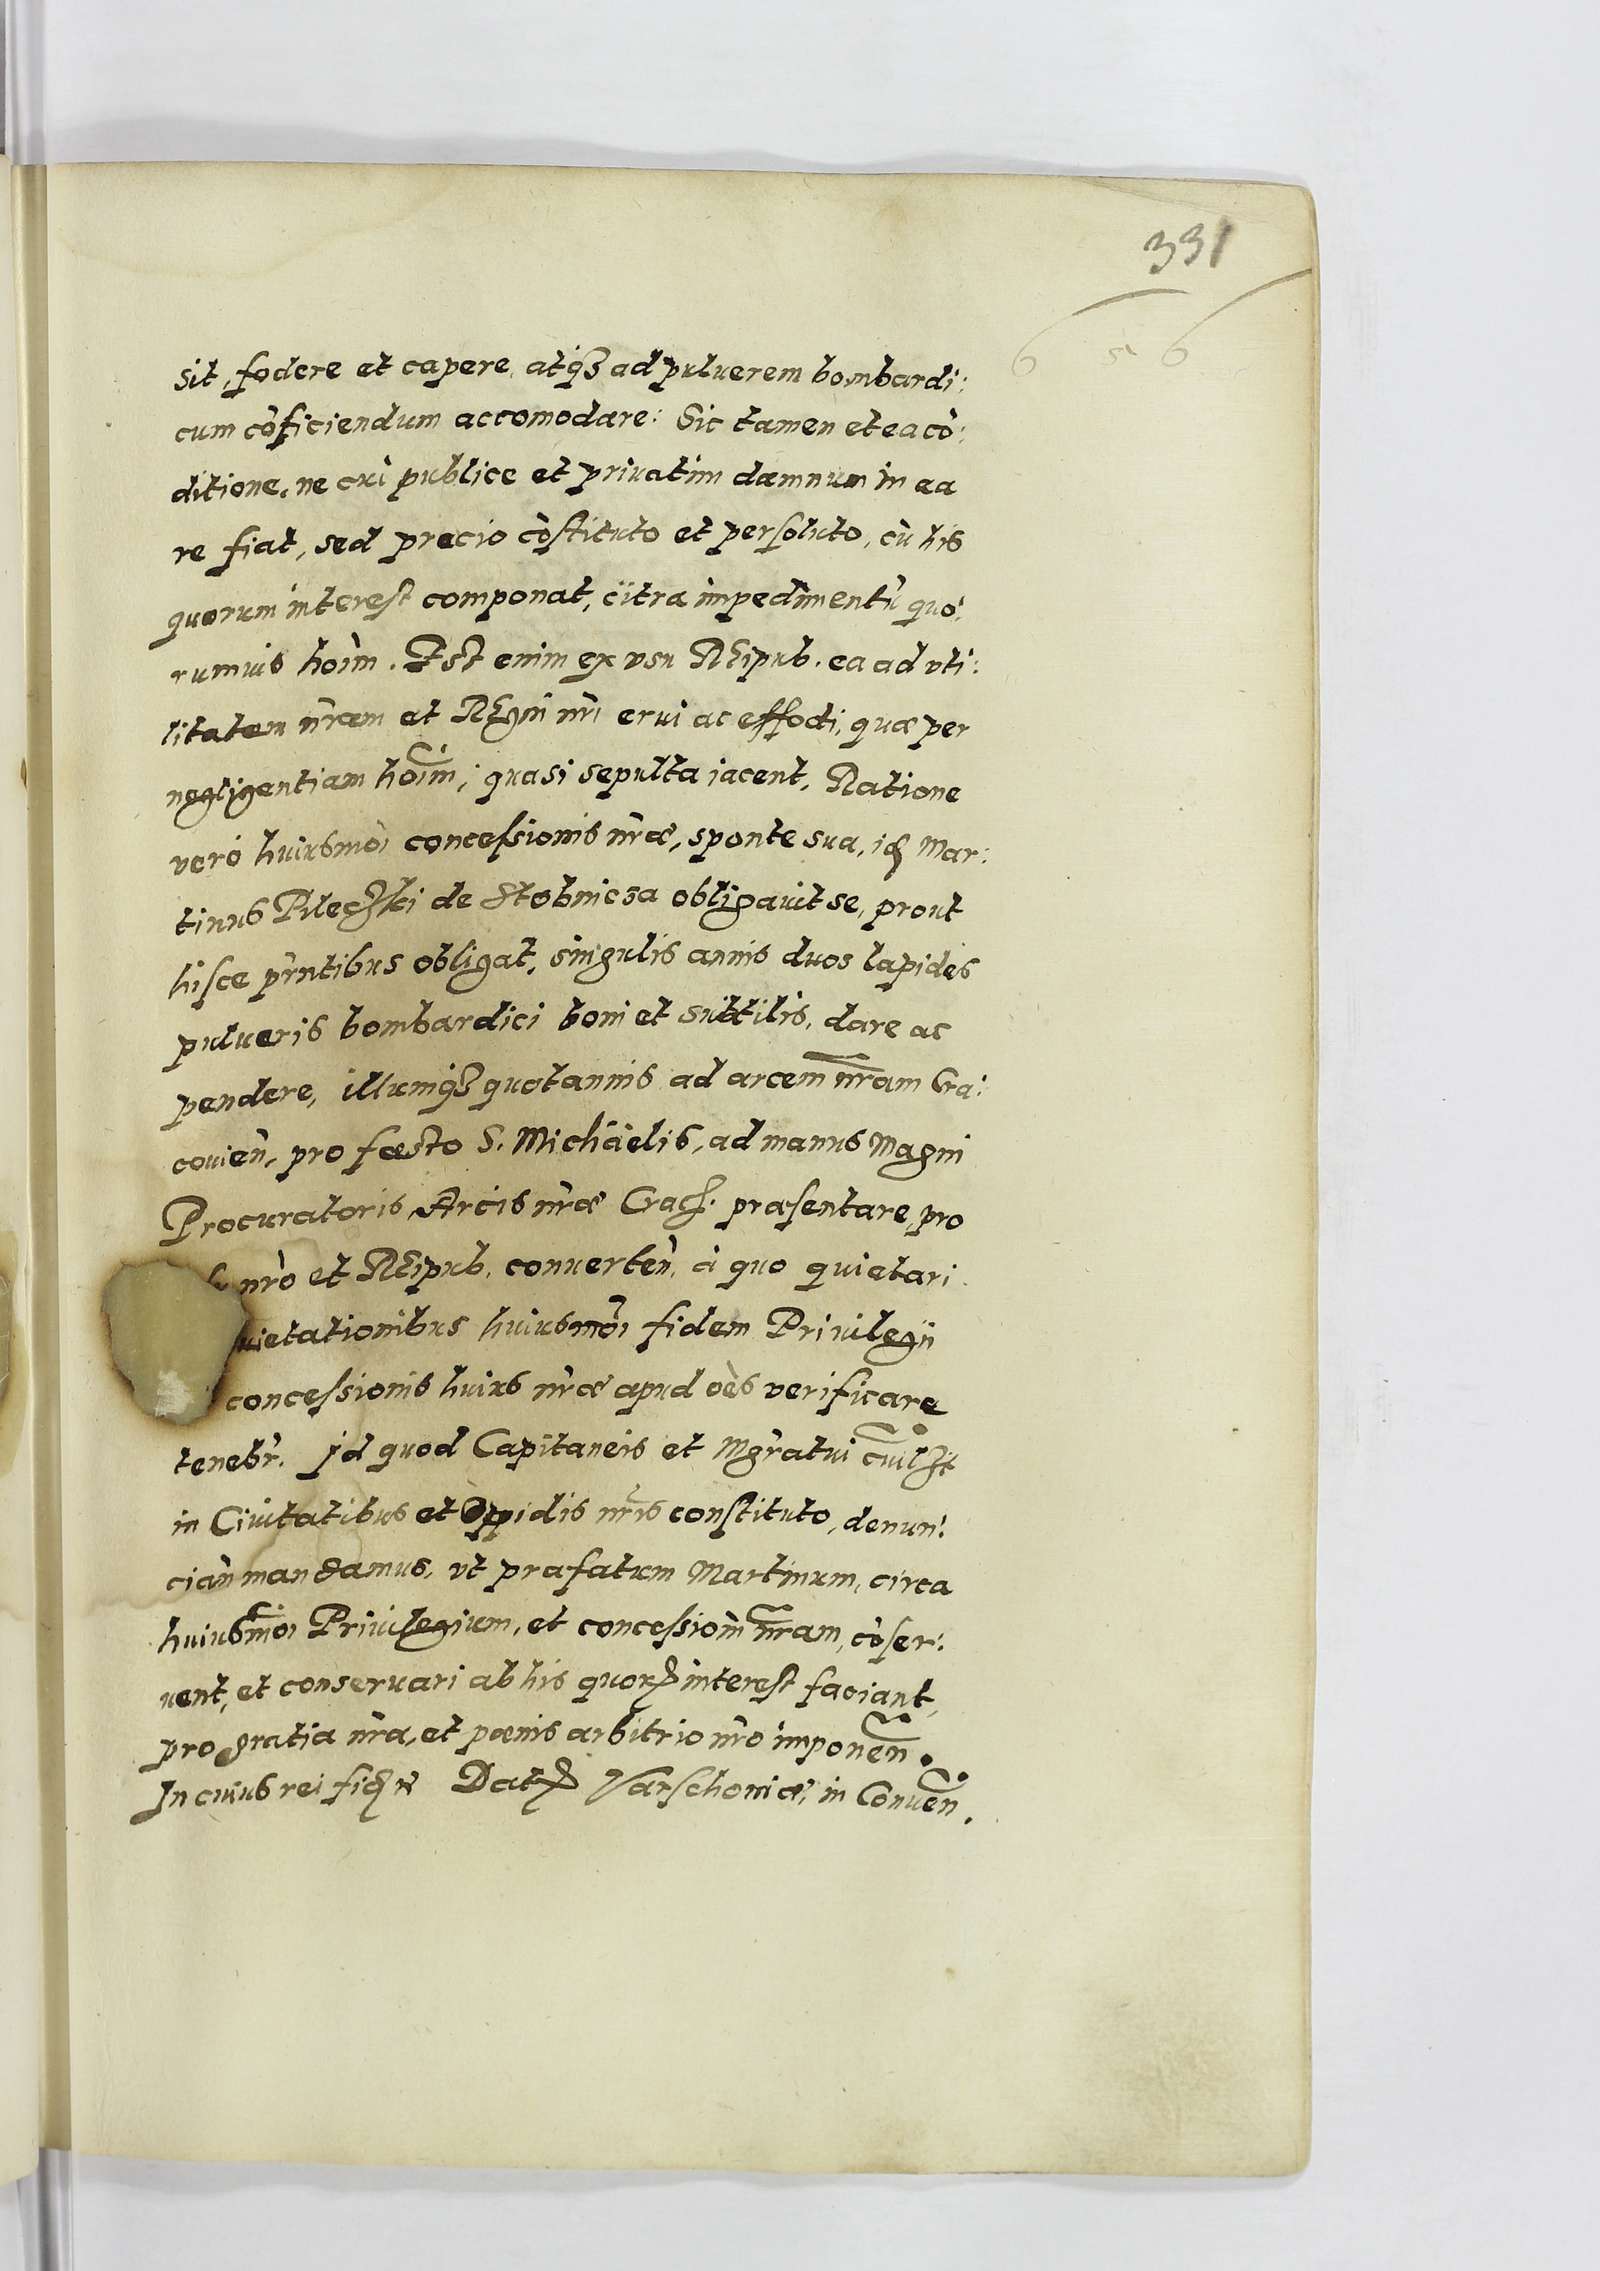 331
6 5 6
sit, fodere et capere, atq3 ad puluerem bombardi:
cum cōficiendum accomodare: Sic tamen et ea cō:
ditione, ne cui publice et priuatim damnum in ea
re fiat, sed precio cōstituto et persoluto, cū his
quorum interest componat, citra impedimentū quo:
rumuis hoīm. Est enim ex vsu Reipub. ea ad vti:
litatem nr̄am et Regni nr̄i erui ac effodi, quæ per
negligentiam hoīm, quasi sepulta iacent, Ratione
vero huiusmōi concessionis nr̄æ, sponte sua, id Mar:
tinus de Stobnicza obligauit se, prout
hisce pn̄tibus obligat, singulis annis duos lapides
pulueris bombardici boni et subtilis, dare ac
pendere, illumq3 quotannis ad arcem nr̄am Cra:
couieñ, pro festo S. Michäelis, ad manus Magni
Procuratoris Arcis nr̄æ Crac. præsentare, pro
nr̄o et Reipub. conuerteñ, à quo quietari
uietationibus huiusmōi fidem Priuilegii
concessionis huius nr̄æ apud oēs verificare
tenebr̄. Id quod Capitaneis et Mgr̄atui
in Ciuitatibus et Oppidis nr̄is constituto, denun:
ciañ mandamus, vt præfatum Martinum, circa
huiusmōi Priuilegium, et concessiom̄ nr̄am, cōser:
uent, et conseruari ab his quor interest faciant,
pro gratia nr̄a, et pœnis arbitrio nr̄o imponeñ.
In cuius rei fid Dat Varschouiæ, in Conueñ.